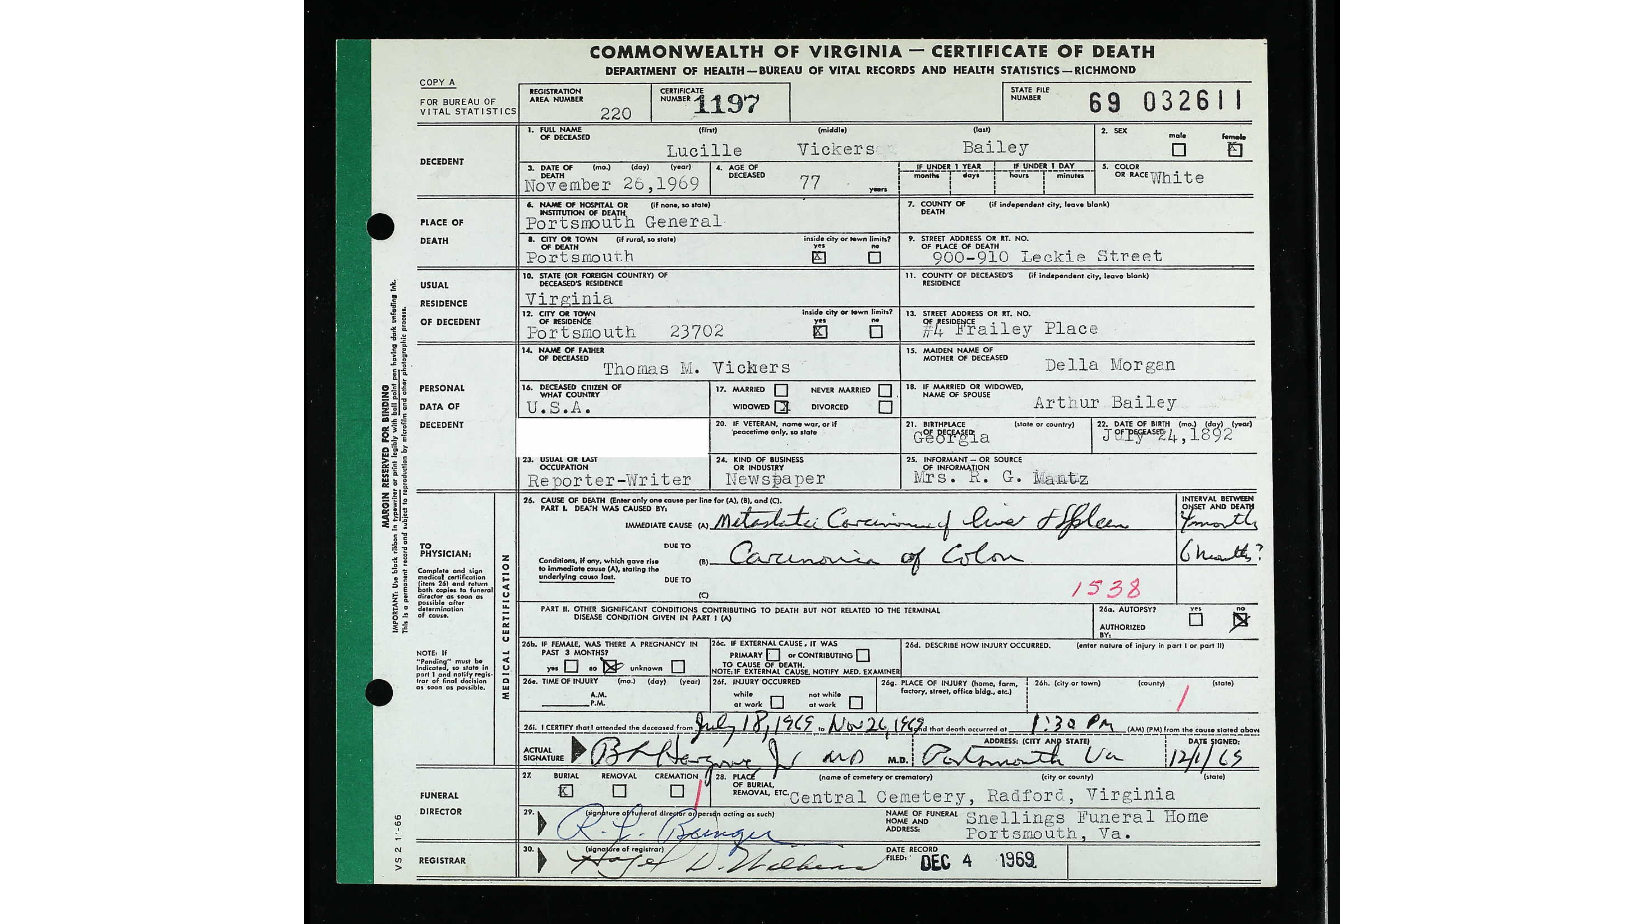 COMMONWEALTH OF VIRGINIA — CERTIFICATE OF DEATH
DEPARTMENT OF HEALTH—BUREAU OF VITAL RECORDS AND HEALTH STATISTICS—RICHMOND
COPY A
FOR BUREAU OF VITAL STATISTICS
REGISTRATION AREA NUMBER 220
CERTIFICATE NUMBER 1197
STATE FILE NUMBER 69 032611
DECEDENT
1. FULL NAME OF DECEASED (first) (middle) (last)
Lucille Vickers Bailey
2. SEX male female X
3. DATE OF DEATH (mo.) (day) (year)
November 26,1969
4. AGE OF DECEASED 77 years
IF UNDER 1 YEAR months days
IF UNDER 1 DAY hours minutes
5. COLOR OR RACE White
PLACE OF DEATH
6. NAME OF HOSPITAL OR INSTITUTION OF DEATH (if none, so state)
Portsmouth General
7. COUNTY OF DEATH (if independent city, leave blank)
8. CITY OR TOWN OF DEATH (if rural, so state) inside city or town limits? yes X no
Portsmouth
9. STREET ADDRESS OR RT. NO. OF PLACE OF DEATH
900-910 Leckie Street
USUAL RESIDENCE OF DECEDENT
10. STATE (OR FOREIGN COUNTRY) OF DECEASED'S RESIDENCE
Virginia
11. COUNTY OF DECEASED'S RESIDENCE (if independent city, leave blank)
12. CITY OR TOWN OF RESIDENCE inside city or town limits? yes X no
Portsmouth 23702
13. STREET ADDRESS OR RT. NO. OF RESIDENCE
#4 Frailey Place
PERSONAL DATA OF DECEDENT
14. NAME OF FATHER OF DECEASED
Thomas M. Vickers
15. MAIDEN NAME OF MOTHER OF DECEASED
Della Morgan
16. DECEASED CITIZEN OF WHAT COUNTRY
U.S.A.
17. MARRIED NEVER MARRIED
WIDOWED X DIVORCED
18. IF MARRIED OR WIDOWED, NAME OF SPOUSE
Arthur Bailey
20. IF VETERAN, name war, or if peacetime only, so state
21. BIRTHPLACE OF DECEASED (state or country)
Georgia
22. DATE OF BIRTH OF DECEASED (mo.) (day) (year)
July 24,1892
23. USUAL OR LAST OCCUPATION
Reporter-Writer
24. KIND OF BUSINESS OR INDUSTRY
Newspaper
25. INFORMANT — OR SOURCE OF INFORMATION
Mrs. R. G. Mantz
MARGIN RESERVED FOR BINDING
IMPORTANT: Use black ribbon in typewriter or print legibly with ball point pen having dark unfading ink.
This is a permanent record and subject to reproduction by microfilm and other photographic process.
TO PHYSICIAN:
Complete and sign medical certification (item 26) and return both copies to funeral director as soon as possible after determination of cause.
NOTE: If "Pending" must be indicated, so state in part I and notify registrar of final decision as soon as possible.
MEDICAL CERTIFICATION
26. CAUSE OF DEATH (Enter only one cause per line for (A), (B), and (C).
PART I. DEATH WAS CAUSED BY:
INTERVAL BETWEEN ONSET AND DEATH
IMMEDIATE CAUSE (A) Metastatic Carcinoma of liver & Spleen 4 months
DUE TO
Conditions, if any, which gave rise to immediate cause (A), stating the underlying cause last.
(B) Carcinoma of Colon 6 months?
DUE TO
1538
(C)
PART II. OTHER SIGNIFICANT CONDITIONS CONTRIBUTING TO DEATH BUT NOT RELATED TO THE TERMINAL DISEASE CONDITION GIVEN IN PART I (A)
26a. AUTOPSY? yes no X
AUTHORIZED BY:
26b. IF FEMALE, WAS THERE A PREGNANCY IN PAST 3 MONTHS?
yes no X unknown
26c. IF EXTERNAL CAUSE, IT WAS
PRIMARY or CONTRIBUTING
TO CAUSE OF DEATH.
NOTE: IF EXTERNAL CAUSE, NOTIFY MED. EXAMINER
26d. DESCRIBE HOW INJURY OCCURRED. (enter nature of injury in part I or part II)
26e. TIME OF INJURY (mo.) (day) (year)
A.M.
P.M.
26f. INJURY OCCURRED
while at work not while at work
26g. PLACE OF INJURY (home, farm, factory, street, office bldg., etc.)
26h. (city or town) (county) (state)
26i. I CERTIFY that I attended the deceased from July 18, 1969 to Nov 26, 1969 and that death occurred at 1:30 PM (AM) (PM) from the cause stated above
ACTUAL SIGNATURE MD M.D.
ADDRESS: (CITY AND STATE) Portsmouth Va
DATE SIGNED: 12/1/69
FUNERAL DIRECTOR
27. BURIAL X REMOVAL CREMATION
28. PLACE OF BURIAL, REMOVAL, ETC. (name of cemetery or crematory) (city or county) (state)
Central Cemetery, Radford, Virginia
29. (signature of funeral director or person acting as such)
NAME OF FUNERAL HOME AND ADDRESS:
Snellings Funeral Home
Portsmouth, Va.
REGISTRAR
30. (signature of registrar)
DATE RECORD FILED: DEC 4 1969